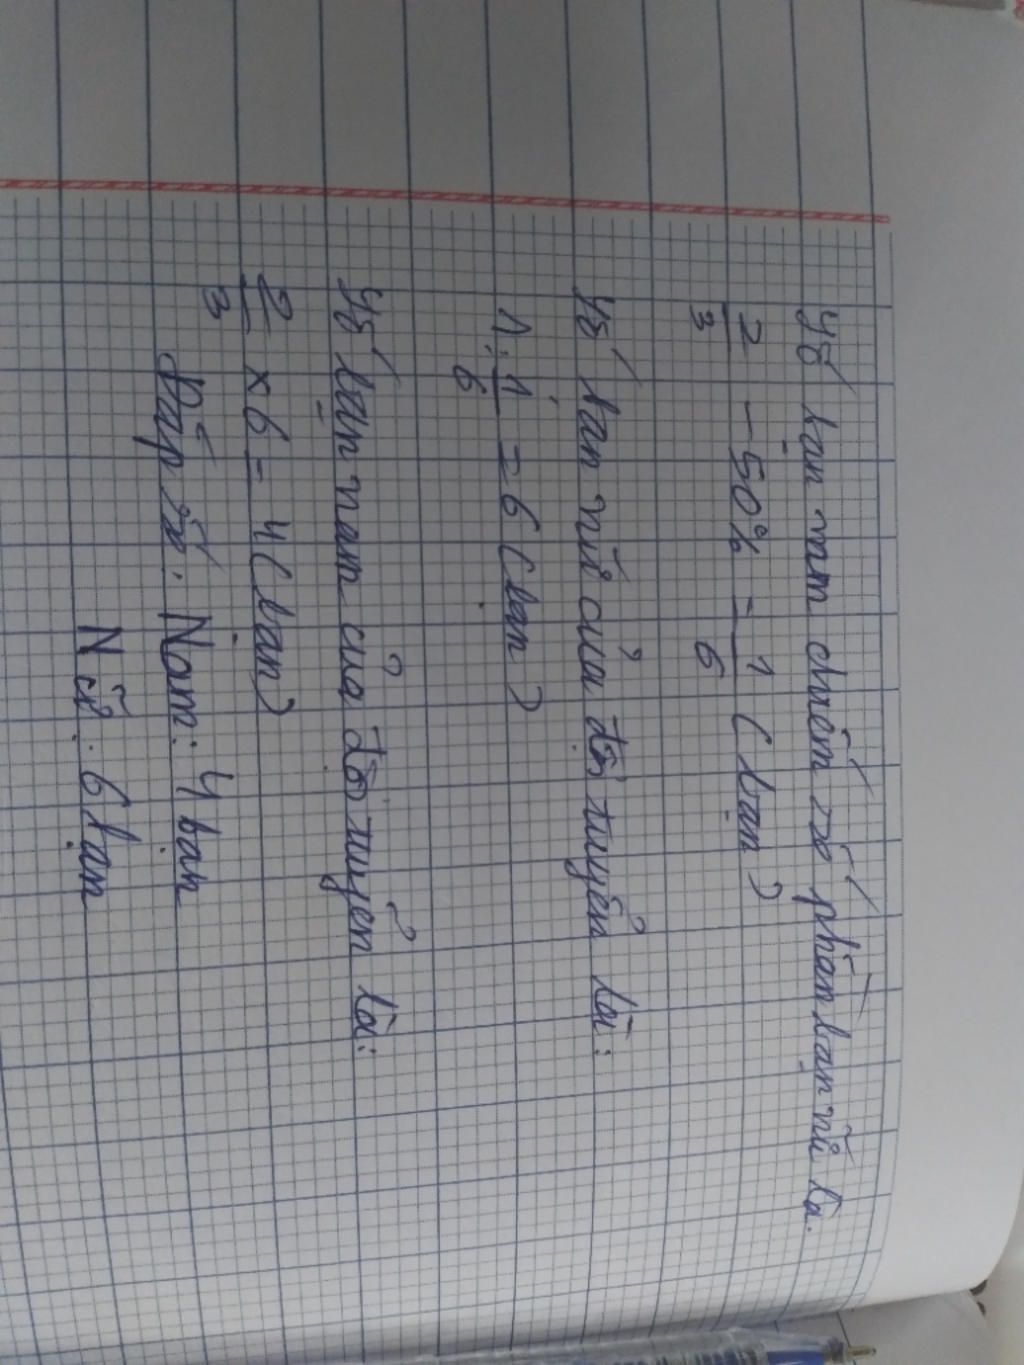 Số bạn nam chiếm số phần bạn nữ là.
2/3 - 50% = 1/6 (bạn)
Số bạn nữ của đội tuyển là:
1 : 1/6 = 6 (bạn)
Số bạn nam của đội tuyển là:
2/3 × 6 = 4 (bạn)
Đáp số: Nam: 4 bạn
Nữ: 6 bạn